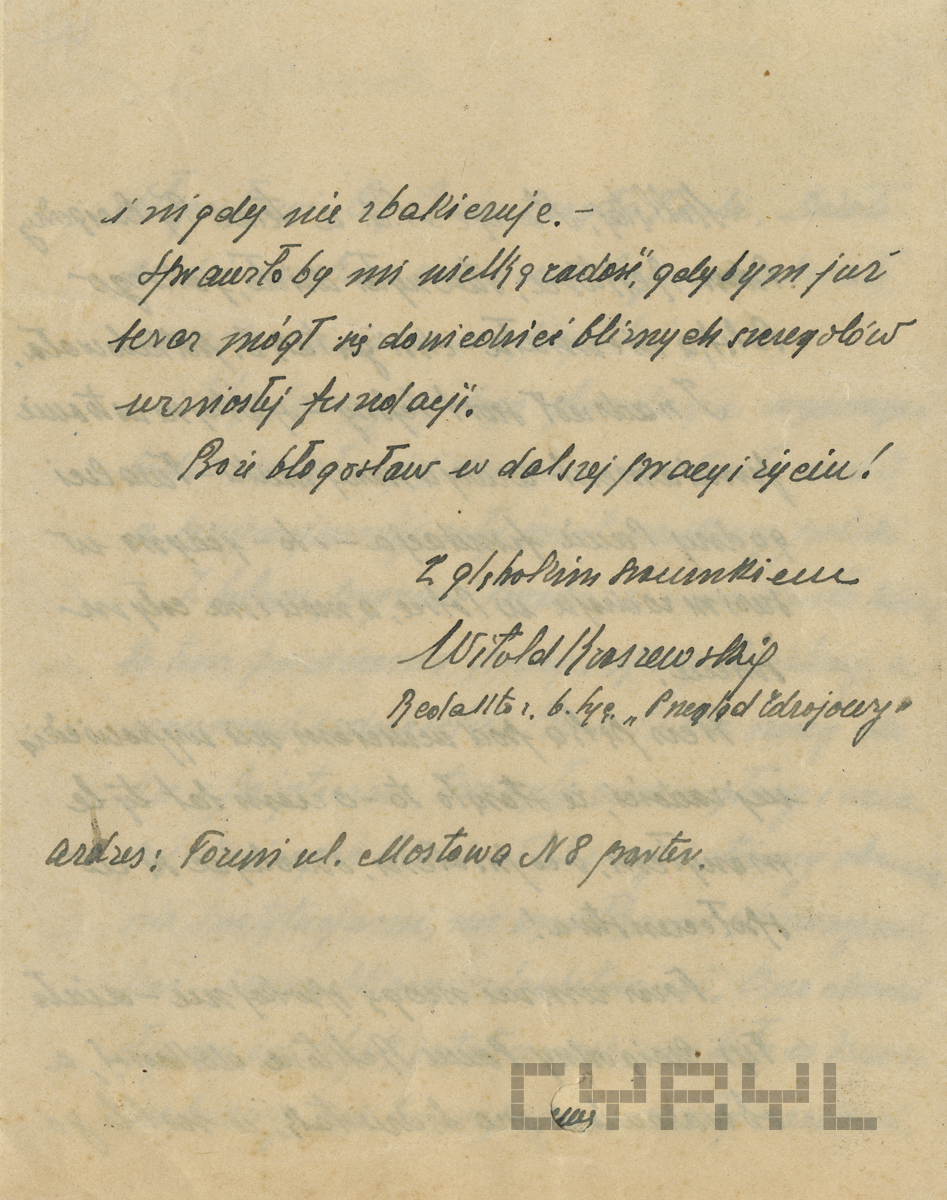 i nigdy nie zbakieruje. –
Sprawiło by mi wielką radość, gdybym już
teraz mógł się dowiedzieć bliznych szczegółów
wzniosłej fundacji.
Boże błogosław w dalszej pracy i życiu!
Z głębokim szacunkiem
Witold Kraszewski
Redaktor. b. tyg. „Przegląd Zdrojowy"
Ardres: Toruń ul. Mostowa N 8 parter.
CYRYL